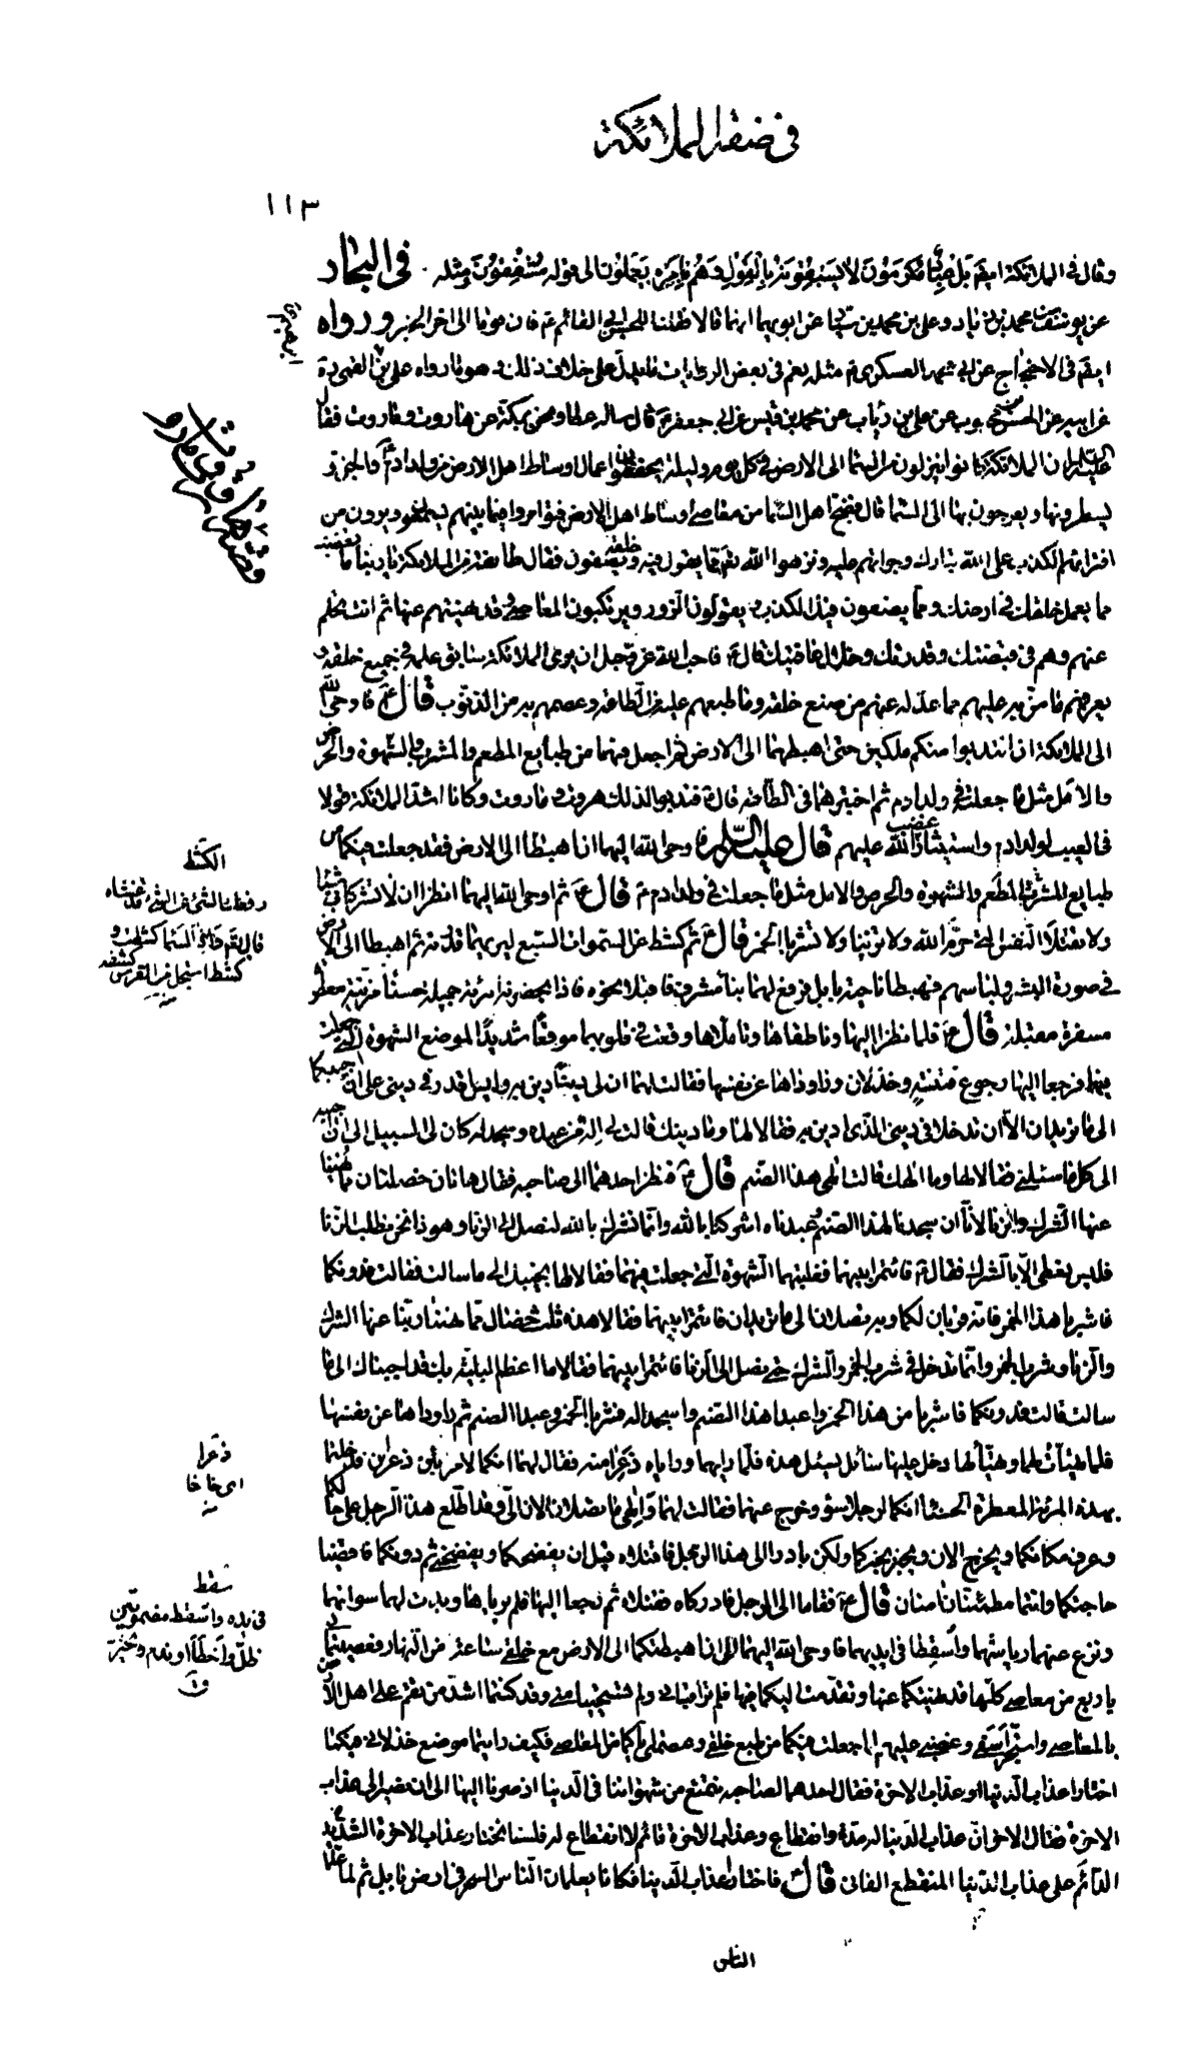 في صفة الملائكة
١١٣
وقال في الملائكة ايضا بل عباد مكرمون لا يسبقونه بالقول وهم بامره يعملون الى قوله مشفقون مثله . في البحار
عن يوسف بن محمد بن زياد وعلي بن محمد بن سيار عن ابويهما انهما قالا فقلنا للحسن ابي القائم ع فان قوما الى اخر الخبر ورواه
ايضا في الاحتجاج عن ابي محمد العسكري ع مثله نعم في بعض الروايات ما يدل على خلاف ذلك وهو ما رواه علي بن ابراهيم القمي ره
عن ابيه عن الحسن بن محبوب عن علي بن رئاب عن محمد بن قيس عن ابي جعفر ع قال ساله عطا ونحن بمكة عن هاروت وماروت فقال
عليه السلام ان الملائكة كانوا ينزلون من السماء الى الارض في كل يوم وليلة يحفظون اعمال اوساط اهل الارض من ولد ادم والجن
يسطرونها ويعرجون بها الى السماء قال فضج اهل السما من معاصي اوساط اهل الارض فتوامروا فيما بينهم مما يسمعون ويرون من
افترائهم الكذب على الله تبارك وجراتهم عليه ونزهوا الله تعم مما يقول فيه خلقه ويصفون فقال طائفة من الملائكة يا ربنا ما تغضب
مما يعمل خلقك في ارضك ومما يصفون فيك الكذب ويقولون الزور ويرتكبون المعاصي وقد نهيتهم عنها ثم انت تحلم
عنهم وهم في قبضتك وقدرتك وخلال عافيتك قال ع فاحب الله عز وجل ان يرى الملائكة سابق علمه في جميع خلقه و
يعرفهم ما من به عليهم مما عدله عنهم من صنع خلقه وما طبعهم عليه من الطاعة وعصمهم به من الذنوب قال ع فاوحى الله
الى الملائكة ان انتدبوا منكم ملكين حتى اهبطهما الى الارض ثم اجعل فيهما من طبايع المطعم والمشرب والشهوة والحرص
والامل مثل ما جعلت في ولد ادم ثم اختبرهما في الطاعة قال ع فندبوا لذلك هروت وماروت وكانا اشد الملائكة قولا
في العيب لولد ادم واستيثار غضب الله عليهم قال عليه السلام فاوحى الله اليهما ان اهبطا الى الارض فقد جعلت فيكما من
طبايع المشرب المطعم والشهوة والحرص والامل مثل ما جعلت في ولد ادم ع قال ع ثم اوحى الله اليهما انظرا ان لا تشركا بي شيئا
ولا تقتلا النفس التي حرم الله ولا تزنيا ولا تشربا الخمر قال ع ثم كشط عن السموات السبع ليريهما قدرته ثم اهبطا الى الارض
في صورة البشر ولباسهم فهبطا ناحية بابل فرفع لهما بناء مشرف فاقبلا نحوه فاذا بحضرته امرئة جميلة حسناء مزينة معطرة
مسفرة مقبلة قال ع فلما نظرا اليها وناطقاها وتاملاها وقعت في قلوبهما موقعا شديدا لموضع الشهوة التي جعلت
فيهما فرجعا اليها رجوع فتنة وخذلان وراوداها عن نفسها فقالت لهما ان لي دينا ادين به وليس اقدر في ديني على ان اجيبكما
الى ما تريدان الا ان تدخلا في ديني الذي ادين به فقالا لها وما دينك قالت لي اله من عبده وسجد له كان لي السبيل الى ان اجيبه
الى كل ما سئلني فقالا لها وما الهك قالت الهي هذا الصنم قال ع فنظر احدهما الى صاحبه فقال هاتان خصلتان مما نهينا
عنها الشرك والزنا لانا ان سجدنا لهذا الصنم وعبدناه اشركنا بالله وانما نشرك بالله لنصل الى الزنا وهو ذا نحن نطلب الزنا
فليس نعطى الا بالشرك فقال ع فائتمرا بينهما فغلبتهما الشهوة التي جعلت فيهما فقالا لها نجيبك الى ما سالت فقالت فدونكما
فاشربا هذا الخمر فانه قربان لكما وبه تصلان الى ما تريدان فائتمرا بينهما فقالا هذه ثلث خصال مما نهانا ربنا عنها الشرك
والزنا وشرب الخمر وانما ندخل في شرب الخمر والشرك حتى نصل الى الزنا فائتمرا بينهما فقالا ما اعظم البلية بك قد اجبناك الى ما
سالت قالت فدونكما فاشربا من هذا الخمر واعبدا هذا الصنم واسجدا له فشربا الخمر وعبدا الصنم ثم راوداها عن نفسها
فلما تهيات لهما وتهيا لها دخل عليها سائل يسئل هذه فلما راهما ورأياه ذعرا منه فقال لهما انكما لامرئين ذعران قد خلوتما
بهذه المرئة المعطرة الحسناء انكما لرجلا سوء وخرج عنهما فقالت لهما لا والهي ما تصلان الان الي وقد اطلع هذا الرجل على حالكما
وعرف مكانكما ويخرج الان ويخبر بخبركما ولكن بادرا الى هذا الرجل فاقتلاه قبل ان يفضحكما ويفضحني ثم دونكما فاقضيا
حاجتكما وانتما مطمئنان امنان قال ع فقاما الى الرجل فادركاه فقتلاه ثم رجعا اليها فلم يرياها وبدت لهما سواتهما
ونزع عنهما رياشهما واسقطا في ايديهما فاوحى الله اليهما انما اهبطتكما الى الارض مع خلقي ساعة من النهار فعصيتماني
باربع من معاصي كلها قد نهيتكما عنها وتقدمت اليكما فيها فلم تراقباني ولم تستحييا مني وقد كنتما اشد من نقم على اهل الارض
بالمعاصي واستجر اسفي وغضبي عليهم لما جعلت فيكما من طبع خلقي وعصمتي اياكما من المعاصي فكيف رايتما موضع خذلاني فيكما
اختارا عذاب الدنيا او عذاب الاخرة فقال احدهما لصاحبه نتمتع من شهواتنا في الدنيا اذ صرنا اليها الى ان نصير الى عذاب
الاخرة فقال الاخر ان عذاب الدنيا له مدة وانقطاع وعذاب الاخرة قائم لا انقطاع له فلسنا نختار عذاب الاخرة الشديد
الدائم على عذاب الدنيا المنقطع الفاني قال فاختارا عذاب الدنيا فكانا يعلمان الناس السحر في ارض بابل ثم لما علما
الناس
وقصة هاروت وماروت
الكشط
رفعك الشئ عن الشئ قد غشاه
قال تعم واذا السماء كشطت و
كشط الجل عن الفرس كشفه
ذعرا
اى خافا
سقط
في يده واسقط مضمومتين
ظل واخطا او ندم وتحير
ق